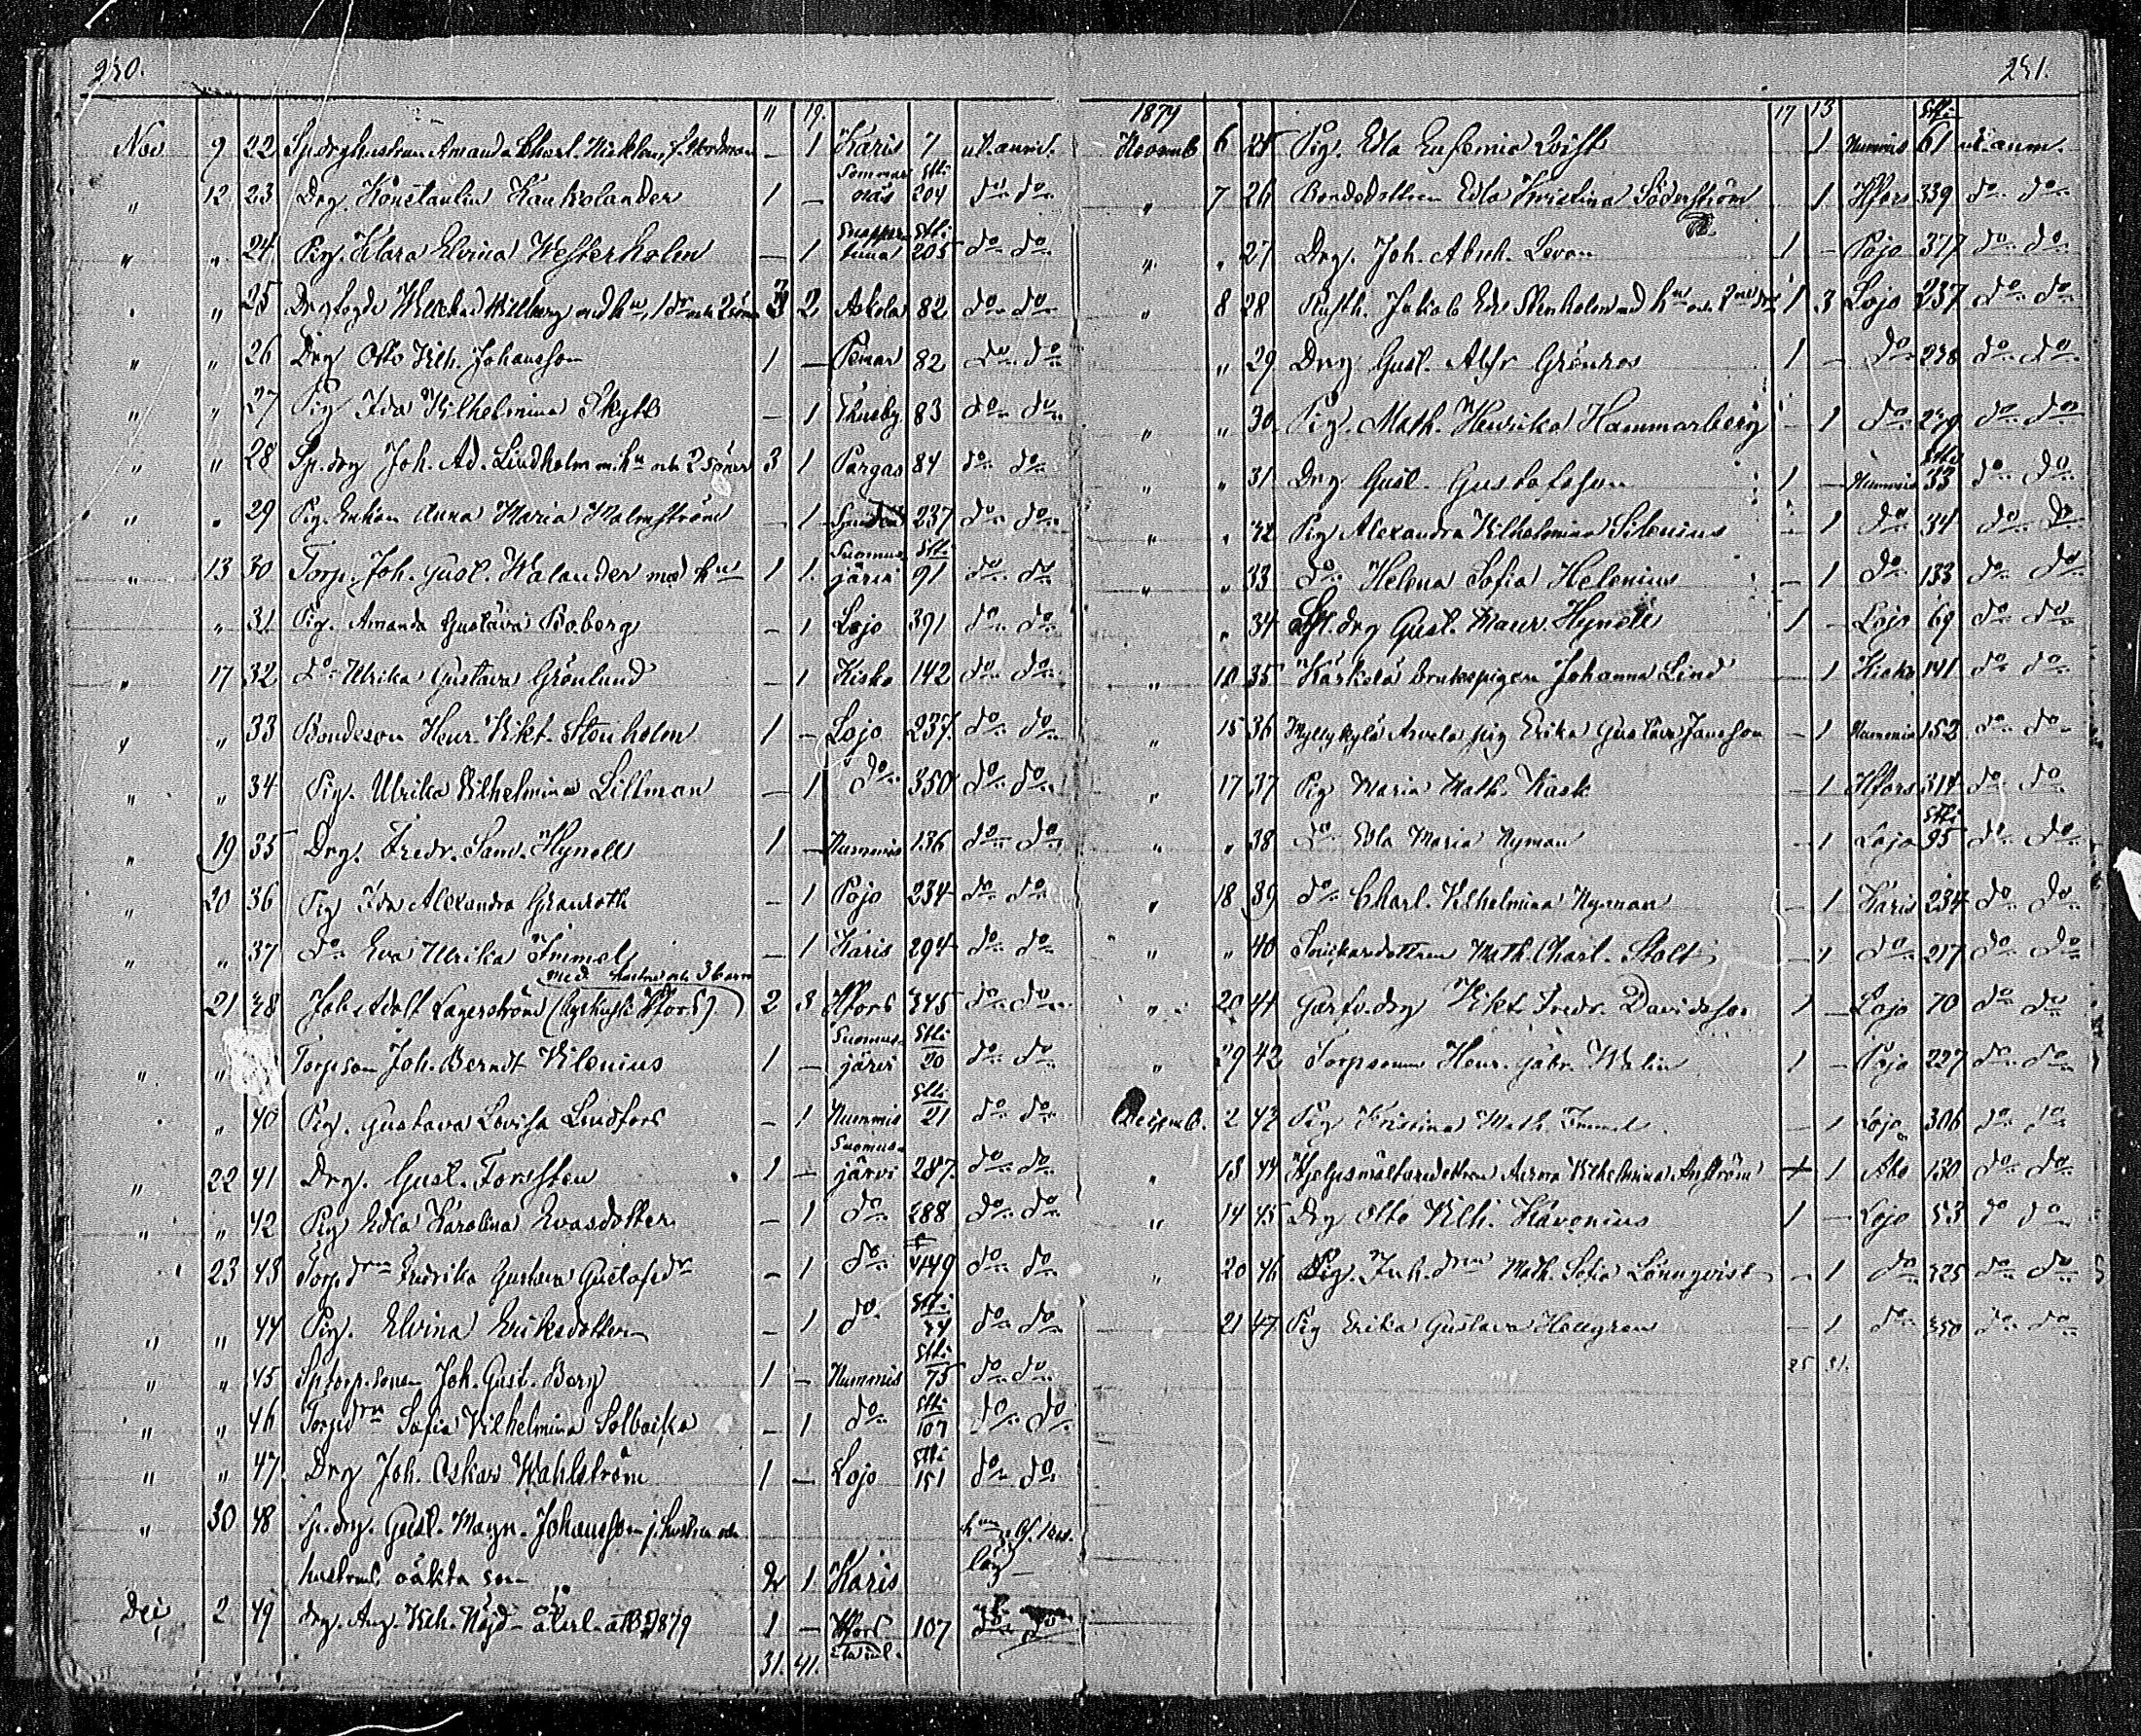 230.
11 19.
Nov 9 22 Sp.drghustrun Amanda Charl. Nicklen, f. Nordman — 1 Karis 7 ut. anml.
" 12 23 Drg. Konstantin Kaukolander 1 — Sommarnäs Ktti 204 do do
" " 24 Pig. Klara Elvina Westerholm — 1 Snappertuna Ktti 205 do do
" " 25 2 Askola 82 do do
" " 26 Drg Otto Vilh. Johansson 1 — Pemar 82 do do
" " 27 Pig Ida Vilhelmina Skytt — 1 Thusby 83 do do
" " 28 Sp.drg Joh. Ad. Lindholm m. hu och 2 söner 3 1 Pargas 84 do do
" " 29 Pig. Enkan Anna Maria Malmström — 1 237 do do
" 13 30 Torp. Joh. Gust. Walander med hu 1 1 Suomusjärvi 91 do do
" 31 Pig. Amanda Gustava Boberg — 1 Lojo 391 do do
" 17 32 do Ulrika Gustava Grönlund — 1 Kisko 142 do do
" " 33 Bondeson Henr. Vikt. Stenholm 1 — Lojo 237. do do
" " 34 Pig. Ulrika Vilhelmina Lillman — 1 do 350 do do
" 19 35 Drg. Fredr. Sam. Hynell 1 — Nummis 136 do do
" 20 36 Pig Ida Alexandra Granroth — 1 Pojo 234 do do
" " 37 do Eva Ulrika Immel — 1 Karis 294 do do
med hustru och 3 barn
21 38 Joh. Adolf Lagerström 2 3 Hfors 345 do do
" " Torpson Joh. Berndt Vilenius 1 — Suomusjärvi 20 do do
" 40 Pig. Gustava Lovisa Lindfors — 1 Nummis 21 do do
" 22 41 Drg. Gust. Forssten 1 — Suomusjärvi 287. do do
" " 42 Pig Edla Karolina Evasdotter — 1 do 288 do do
" 23 43 Torpdrn Fredrika Gustava Gustafsdr — 1 do 449 do do
" " 44 Pig. Elvina Eriksdotter — 1 do do do
" " 45 Sptorp.sonen Joh. Gust. Berg 1 — Nummis 75 do do
" " 46 Torpdrn Sofia Vilhelmina — 1 do 107 do do
" " 47 Drg Joh. Oskar Wahlström 1 — Lojo 151 do do
" 30 48 Sp.drg. Gust. Magn. Johansson j. hustru och
hustruns oäkta son 2 1 Karis
Dec 2 49 drg. Aug. Vilh. Nöjd 1879 1 — Hfors 107 do do
31. 41.
231.
1879 17 13
Novemb 6 25 Pig. Edla Eufemia Qvist 1 Nummis 61 ut. anm.
" 7 26 Bondedottren Edla Kristina Söderström 1 Hfors 339 do do
" " 27 Drg. Joh. Abrah. Levon 1 — Pojo 377 do do
" 8 28 Rusth. Jakob Edv Stenholm md hu och 1 3 Lojo 237 do do
" 29 Drg Gust. Alfr Grönroos 1 — do 238 do do
" " 30 Pig. Math. Henrika Hammarberg — 1 do 239 do do
" " 31 Drg Gust. Gustafsson 1 — Nummis 33 do do
" " 32 Pig Alexandra Vilhelmina Silenius — 1 do 34 do do
" " 33 do Helena Sofia Helenius — 1 do 133 do do
" 34 drg Gust. Maur. Hynell 1 — Lojo 69 do do
" 10 35 Kärkelä brukspigan Johanna Lind — 1 Kisko 141 do do
" 15 36 Myllykylä Arvela pig Erika Gustava Jansson — 1 Nummis 152 do do
" 17 37 Pig Maria Math. Kask — 1 Hfors 314 do do
" " 38 do Edla Maria Nyman — 1 Lojo 95 do do
" 18 39 do Charl. Vilhelmina Nyman — 1 Karis 234 do do
" " 40 Snickaredottren Math. Charl. Stolt — 1 do 217 do do
" 20 41 drg Vikt. Fredr. Davidsson 1 — Lojo 70 do do
" 29 42 Torpsonen Henr. Gabr. Walin 1 — Pojo 227 do do
Decemb. 2 43 Pig Kristina Math. Immel — 1 Lojo 306 do do
" 13 44 1 Åbo 130 do do
" 14 45 Drg Otto Vilh. Kavonius 1 — Lojo 53 do do
" 20 46 Pig. Inh.drn Math. Sofia Lönnqvist — 1 do 325 do do
" 21 47 Pig Erika Gustava Hellgren — 1 do 350 do do
25 31.